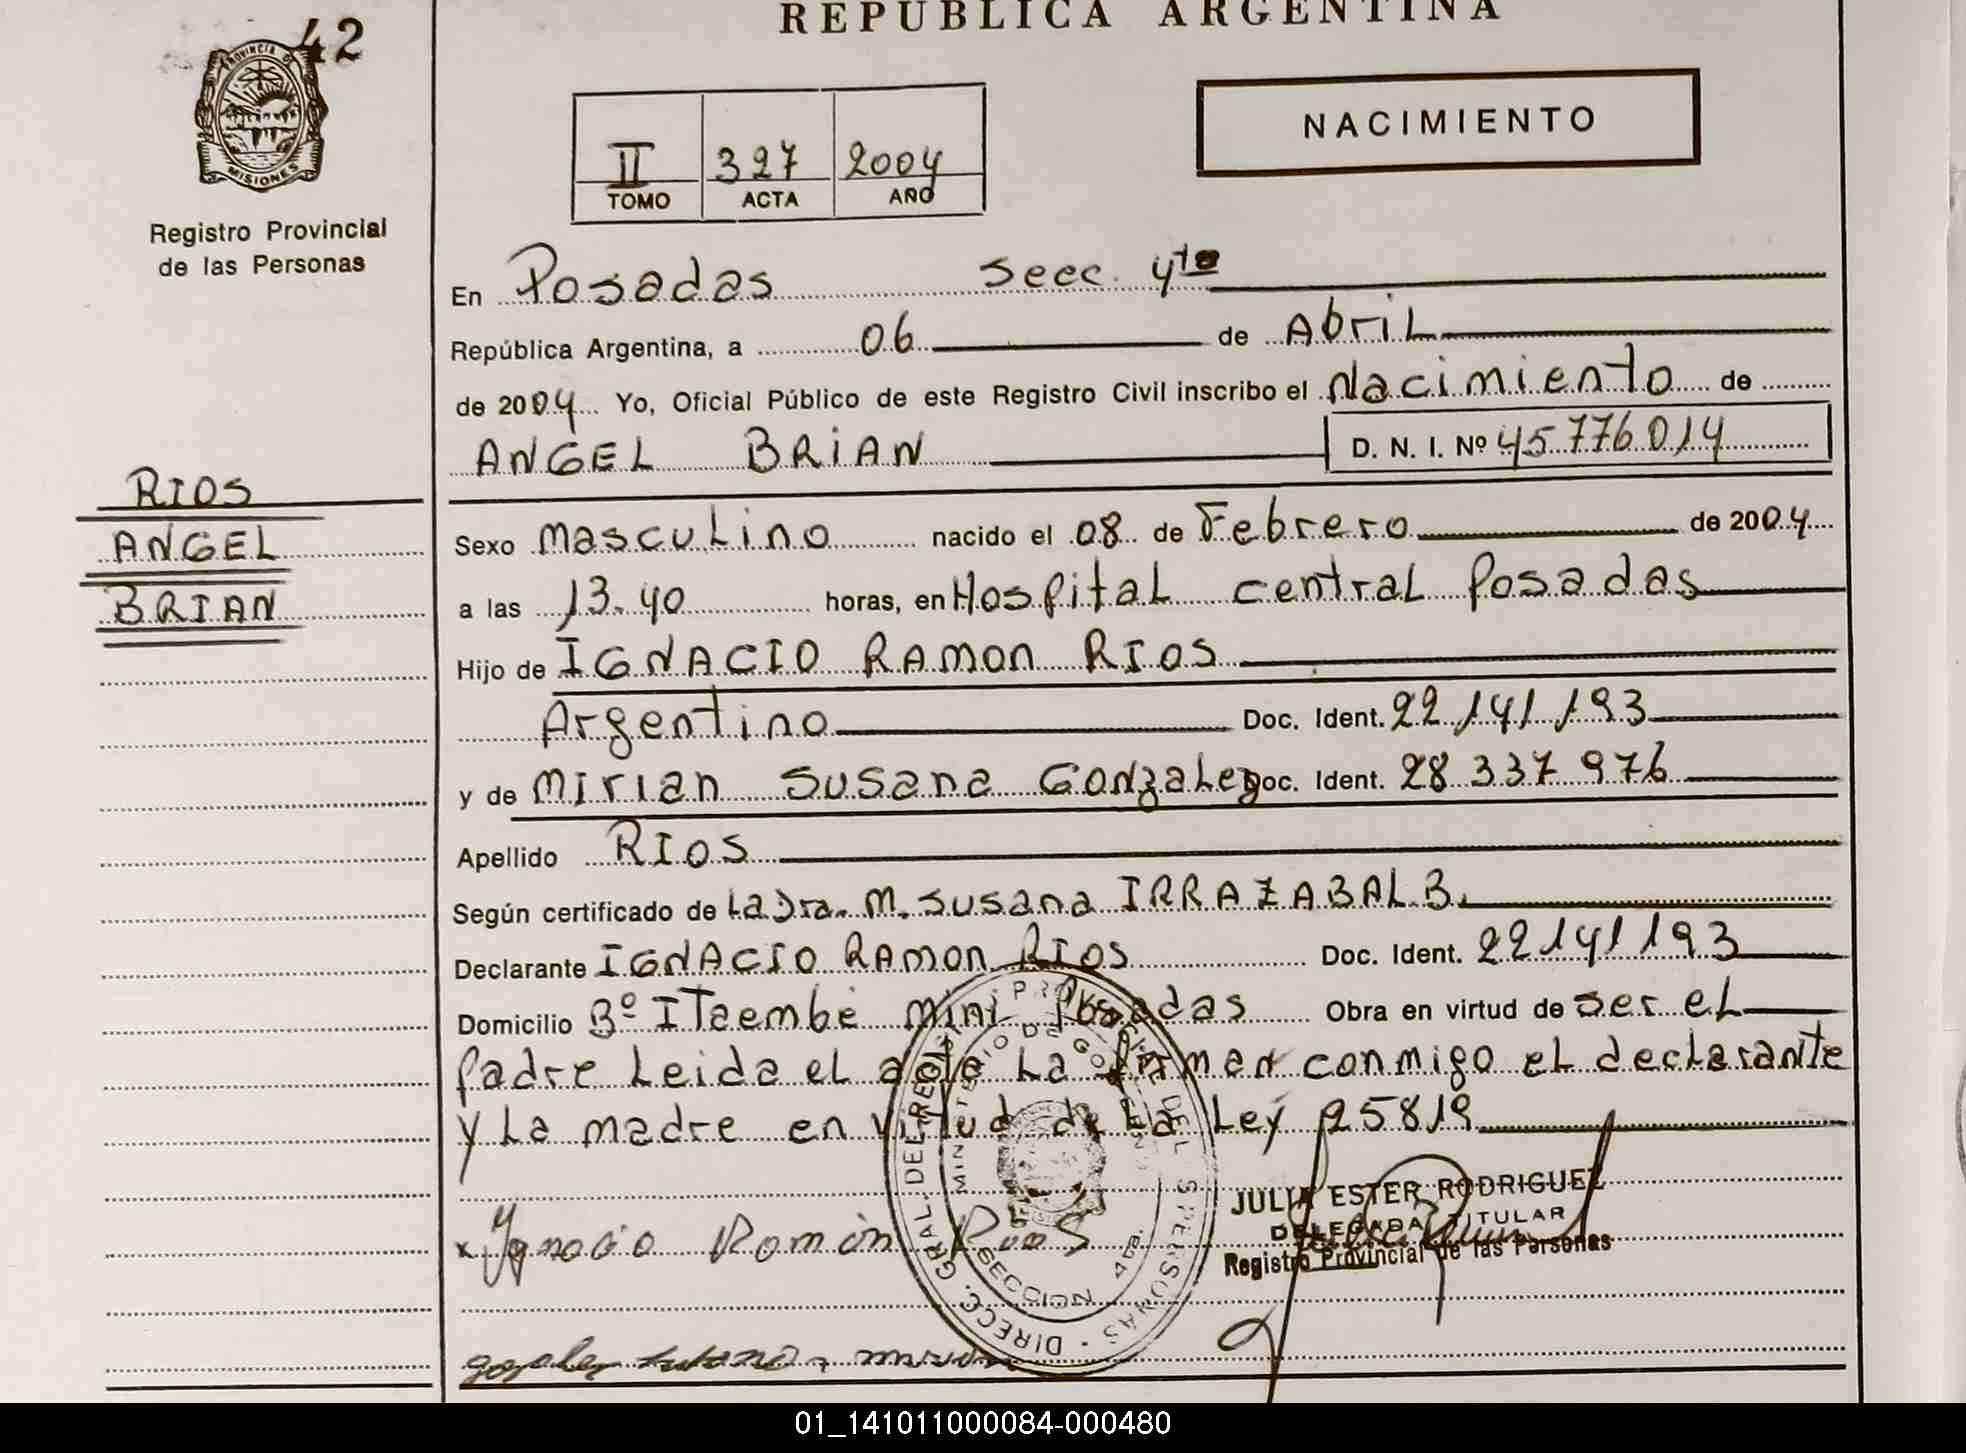 REPUBLICA ARGENTINA
42
PROVINCIA DE
MISIONES
Registro Provincial
de las Personas
II 327 2004
TOMO ACTA AÑO
NACIMIENTO
En Posadas Secc. 4ta
República Argentina, a 06 de Abril
de 2004 Yo, Oficial Público de este Registro Civil inscribo el Nacimiento de
ANGEL BRIAN D. N. I. Nº 45.776.014
RIOS
ANGEL
BRIAN
Sexo Masculino nacido el 08 de Febrero de 2004
a las 13.40 horas, en Hospital central Posadas
Hijo de IGNACIO RAMON RIOS
Argentino Doc. Ident. 22.141.193
y de Mirian Susana Gonzalez Doc. Ident. 28 337 976
Apellido RIOS
Según certificado de La Dra. M. Susana IRRAZABAL B.
Declarante IGNACIO RAMON RIOS Doc. Ident. 22141193
Domicilio Bº ITaembé mini Posadas Obra en virtud de ser el
padre Leida el acta La firman conmigo el declarante
y La madre en virtud de La Ley 25819
JULIA ESTER RODRIGUEZ
DELEGADA TITULAR
Registro Provincial de las Personas
x Ygnacio Romón Rios
DIRECC. GRAL. DEL REG. PROV. DE LAS PERSONAS
MINISTERIO DE GOBIERNO
SECCION 4ta.
01_141011000084-000480